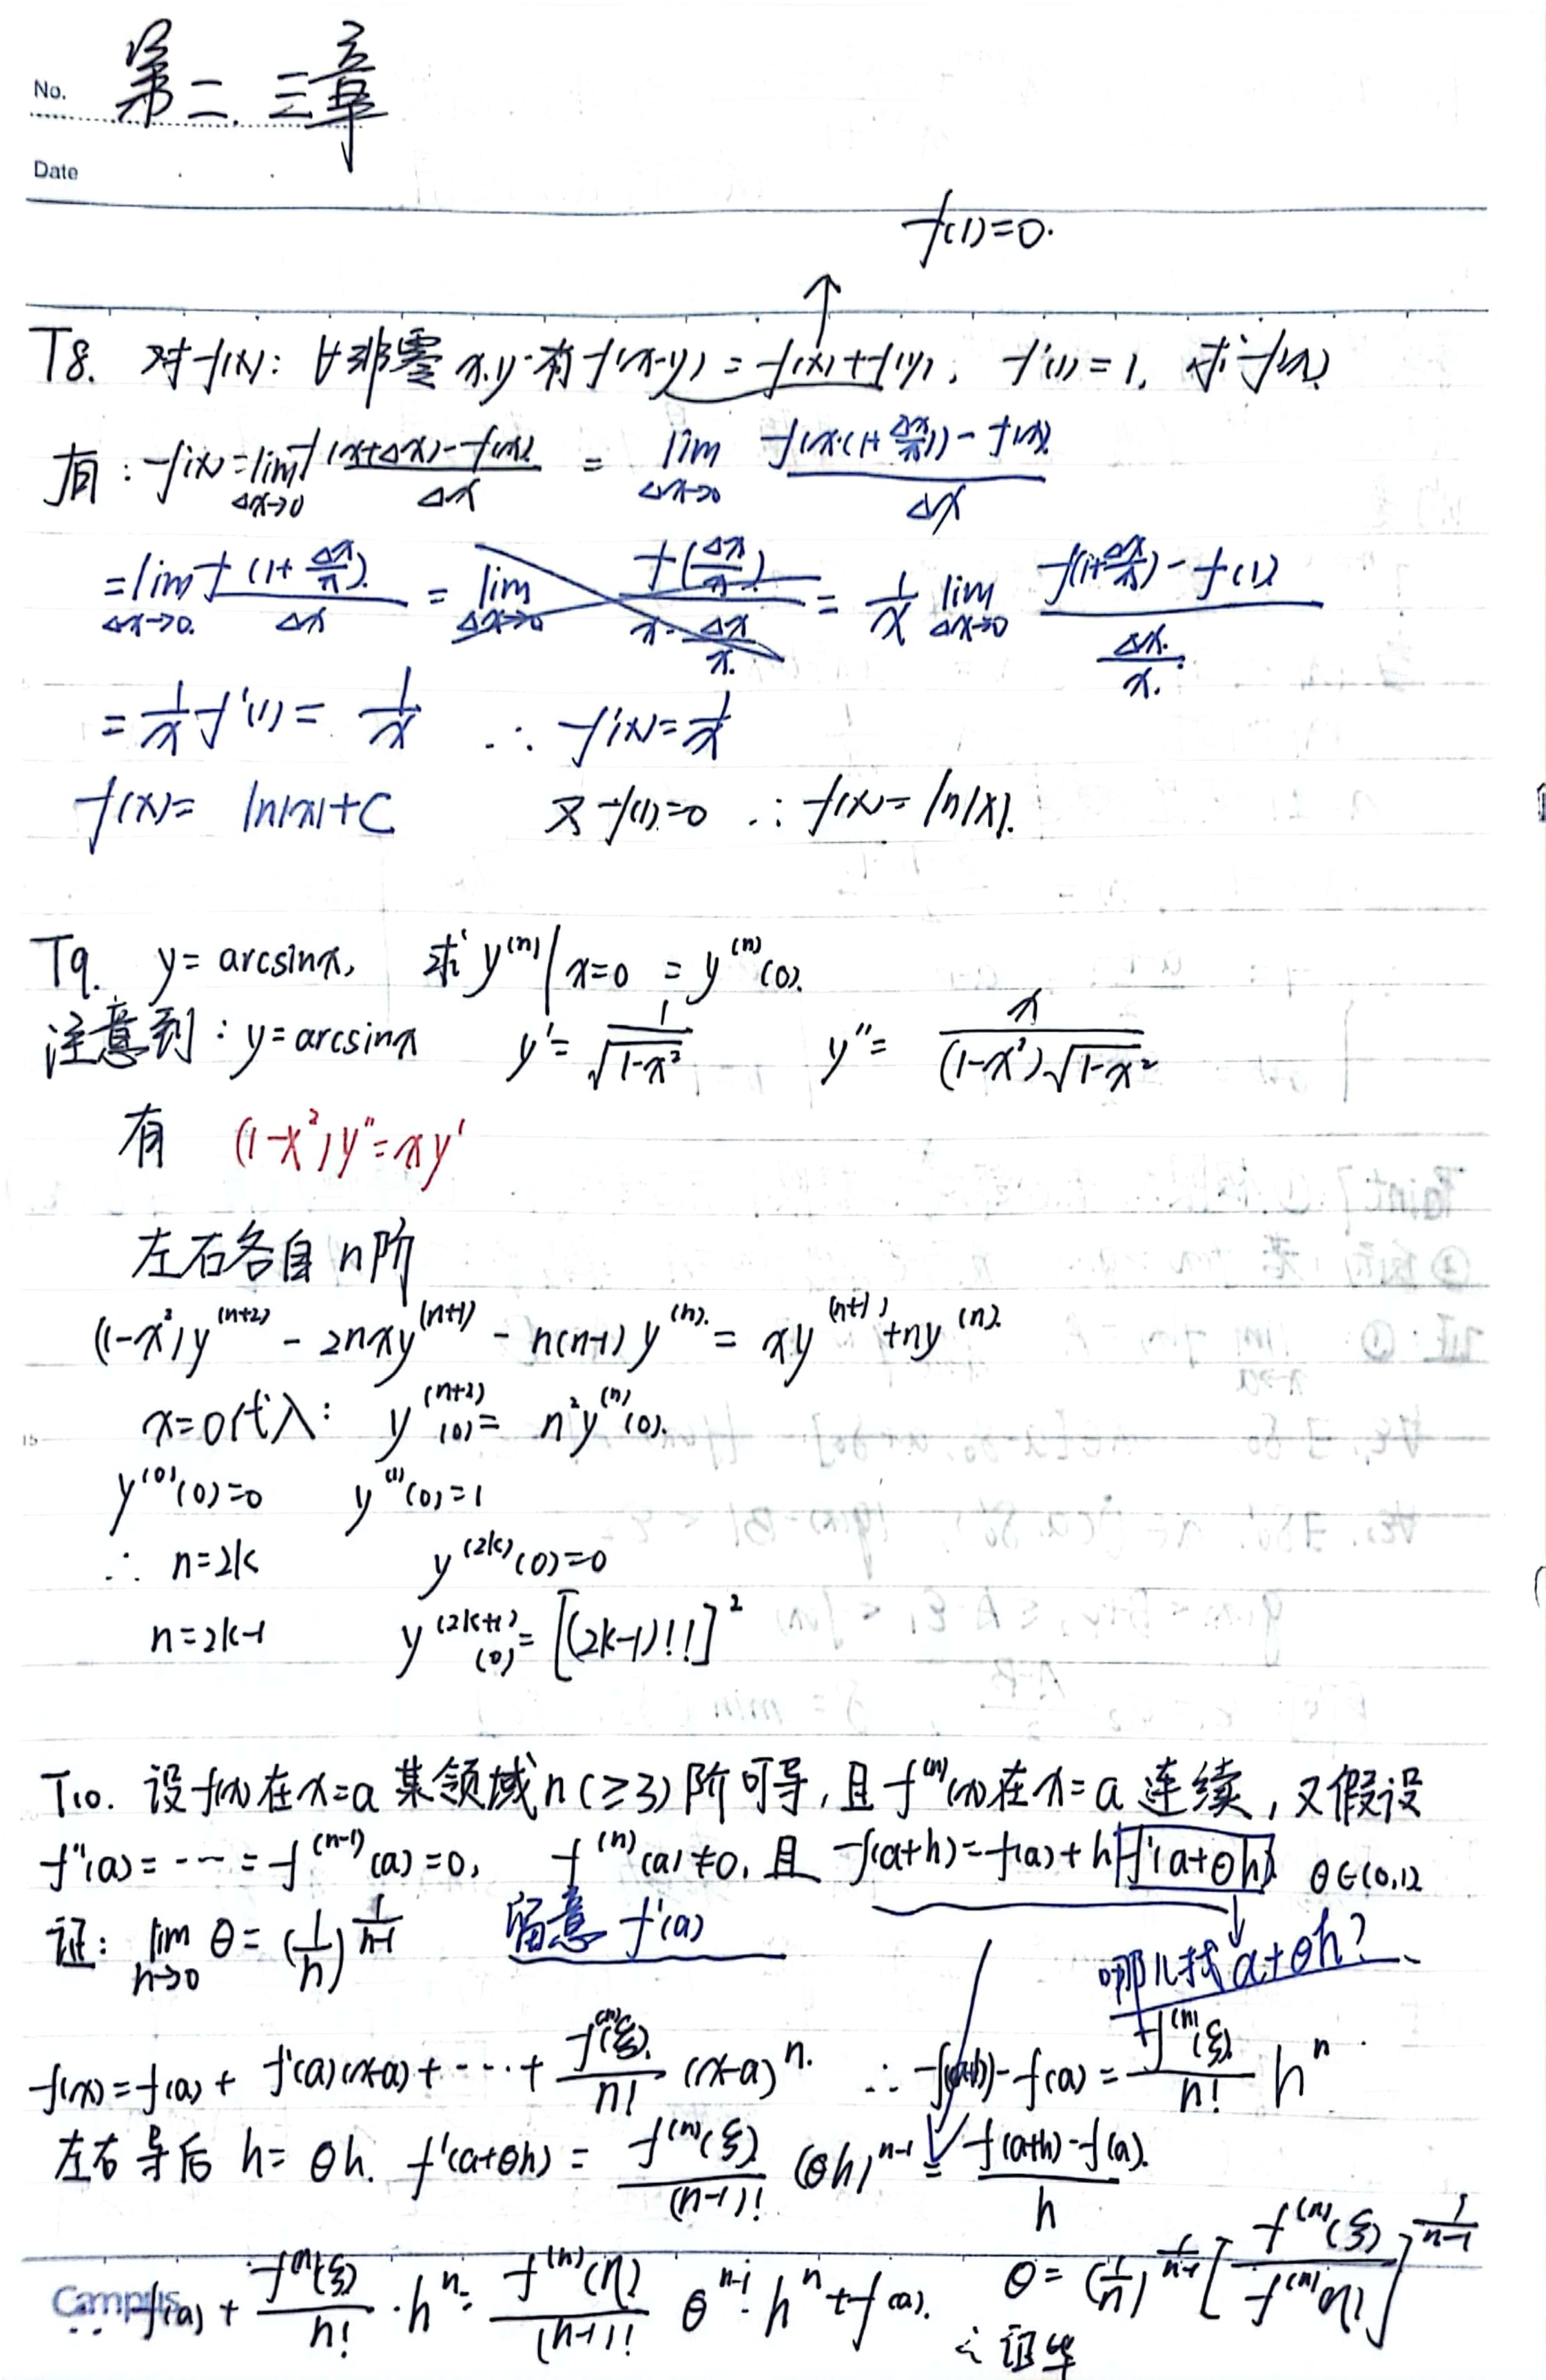 No. 第二、三章
Date
f(1)=0.
↑
T8. 对f(x): ∀非零x,y有f(x·y)=f(x)+f(y), f'(1)=1, 求f(x)
有: f'(x)=lim_{Δx→0} (f(x+Δx)-f(x))/Δx = lim_{Δx→0} (f(x·(1+Δx/x))-f(x))/Δx
=lim_{Δx→0} f(1+Δx/x)/Δx = lim_{Δx→0} f(Δx/x)/(x·Δx/x) = 1/x lim_{Δx→0} (f(1+Δx/x)-f(1))/(Δx/x)
=1/x f'(1)=1/x ∴ f'(x)=1/x
f(x)= ln|x|+C 又f(1)=0 ∴ f(x)=ln|x|.
T9. y=arcsinx, 求y^(n)|x=0 = y^(n)(0).
注意到: y=arcsinx y'=1/√(1-x²) y''= x/((1-x²)√(1-x²))
有 (1-x²)y''=xy'
左右各自n阶
(1-x²)y^(n+2) - 2nxy^(n+1) - n(n-1)y^(n) = xy^(n+1)+ny^(n)
x=0代入: y^(n+2)(0)= n²y^(n)(0).
y^(0)(0)=0 y^(1)(0)=1
∴ n=2k y^(2k)(0)=0
n=2k-1 y^(2k+1)(0)=[(2k-1)!!]²
T10. 设f(x)在x=a某领域n(≥3)阶可导,且f^(n)(x)在x=a连续,又假设
f''(a)=---=f^(n-1)(a)=0, f^(n)(a)≠0, 且 f(a+h)=f(a)+hf'(a+θh). θ∈(0,1)
证: lim_{h→0} θ=(1/n)^{1/(n-1)} 留意f'(a) 哪儿找a+θh?
f(x)=f(a)+f'(a)(x-a)+···+f^(n)(ξ)/n! (x-a)^n. ∴ f(a+h)-f(a)=f^(n)(ξ)/n! h^n
左右导后 h=θh. f'(a+θh)= f^(n)(ξ)/(n-1)! (θh)^{n-1} = (f(a+h)-f(a))/h
∴ f(a)+f^(n)(ξ)/n!·h^n = f^(n)(η)/(n-1)! θ^{n-1}·h^n+f(a). θ=(1/n)^{1/(n-1)}[f^(n)(ξ)/f^(n)(η)]^{1/(n-1)}
∴证毕
Campus